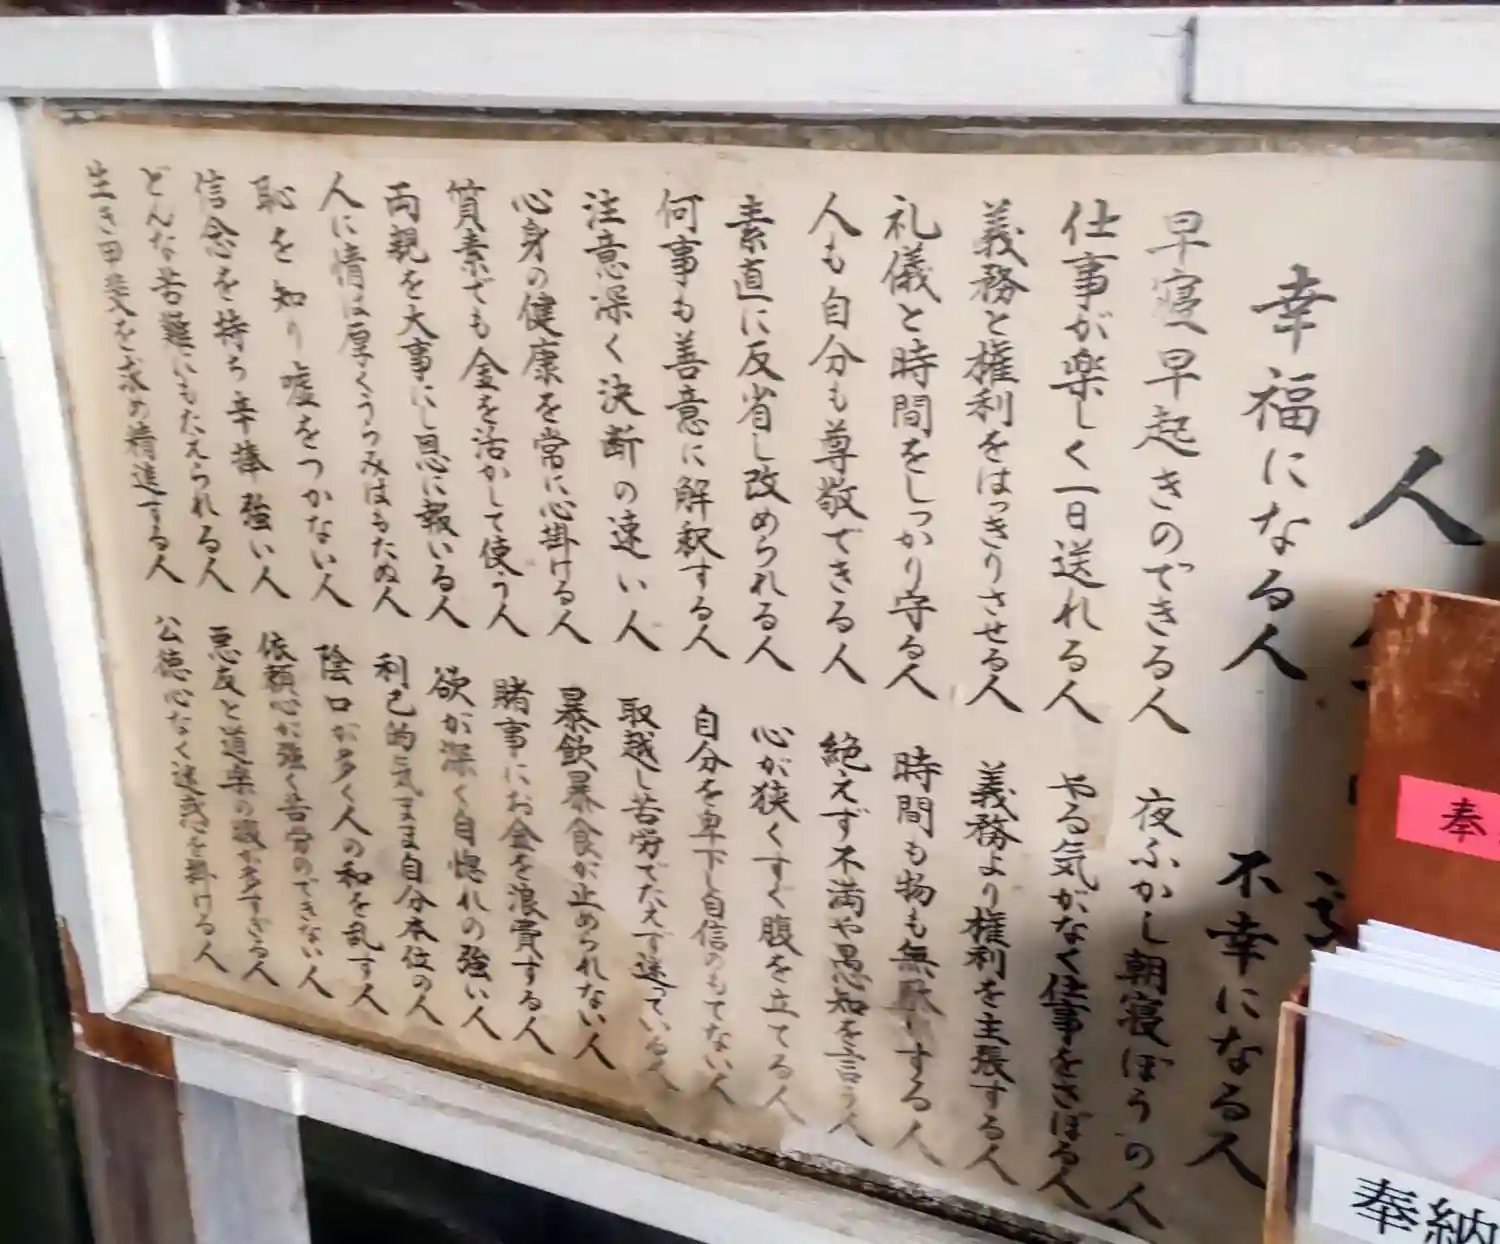 人
幸福になる人
早寝早起きのできる人
仕事が楽しく一日送れる人
義務と権利をはっきりさせる人
礼儀と時間をしっかり守る人
人も自分も尊敬できる人
素直に反省し改められる人
何事も善意に解釈する人
注意深く決断の速い人
心身の健康を常に心掛ける人
質素でも金を活かして使う人
両親を大事にし恩に報いる人
人に情は厚くうらみはもたぬ人
恥を知り嘘をつかない人
信念を持ち辛棒強い人
どんな苦難にもたえられる人
生き甲斐を求め精進する人
不幸になる人
夜ふかし朝寝ぼうの人
やる気がなく仕事をさぼる人
義務より権利を主張する人
時間も物も無駄にする人
絶えず不満や愚知を言う人
心が狭くすぐ腹を立てる人
自分を卑下し自信のもてない人
取越し苦労でたえず迷っている人
暴飲暴食が止められない人
賭事にお金を浪費する人
欲が深く自惚れの強い人
利己的気まま自分本位の人
陰口が多く人の和を乱す人
依頼心が強く苦労のできない人
悪友と道楽の度がすぎる人
公徳心なく迷惑を掛ける人
奉
奉納